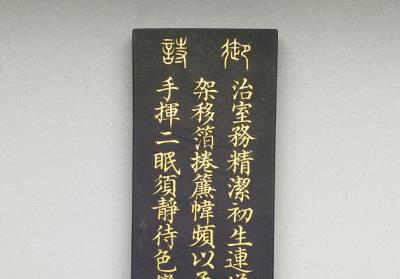 御詩
治室務精潔初生連
架移箔捲簾幃頻以
手揮二眠須靜待色